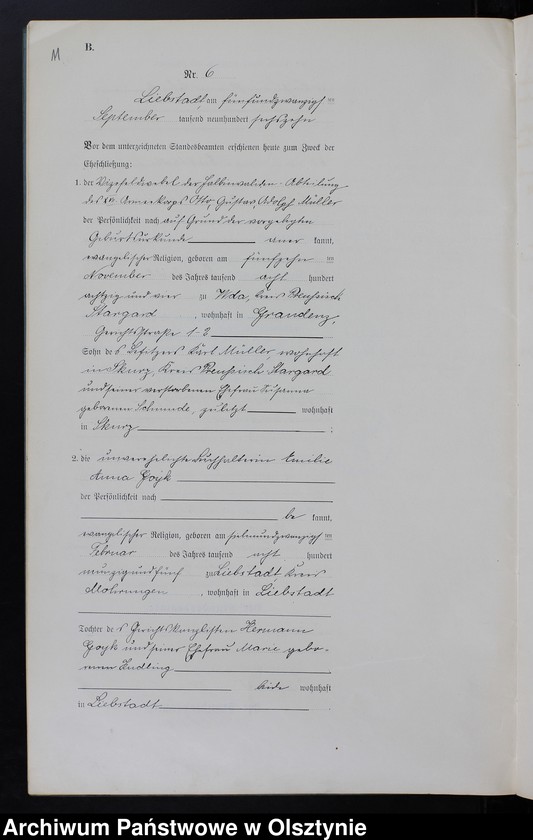 M
B.
Nr. 6
Liebstadt, am fünfundzwanzigsten
September tausend neunhundert sechszehn
Vor dem unterzeichneten Standesbeamten erschienen heute zum Zweck der
Eheschließung:
1. der Vizefeldwebel der Halbinvaliden-Abteilung
des Armeekorps Otto Gustav Adolf Müller
der Persönlichkeit nach auf Grund der vorgelegten
Geburtsurkunde anerkannt,
evangelischer Religion, geboren am fünfzehnten
November des Jahres tausend acht hundert
achtzig und vier zu Wda, Kreis Preußisch
Stargard, wohnhaft in Graudenz,
Gerichtsstraße 1-3
Sohn des Besitzers Karl Müller, wohnhaft
in Skurz, Kreis Preußisch Stargard
und seiner verstorbenen Ehefrau Susanna
geborenen, zuletzt wohnhaft
in Skurz ;
2. die unverehelichte Buchhalterin Emilie
Anna Gojk
der Persönlichkeit nach
bekannt,
evangelischer Religion, geboren am siebenundzwanzigsten
Februar des Jahres tausend acht hundert
neunzig und fünf zu Liebstadt, Kreis
Mohrungen, wohnhaft in Liebstadt
Tochter des Gerichtskanzlisten Hermann
Gojk und seiner Ehefrau Marie gebo-
renen
beide wohnhaft
in Liebstadt .
Archiwum Państwowe w Olsztynie